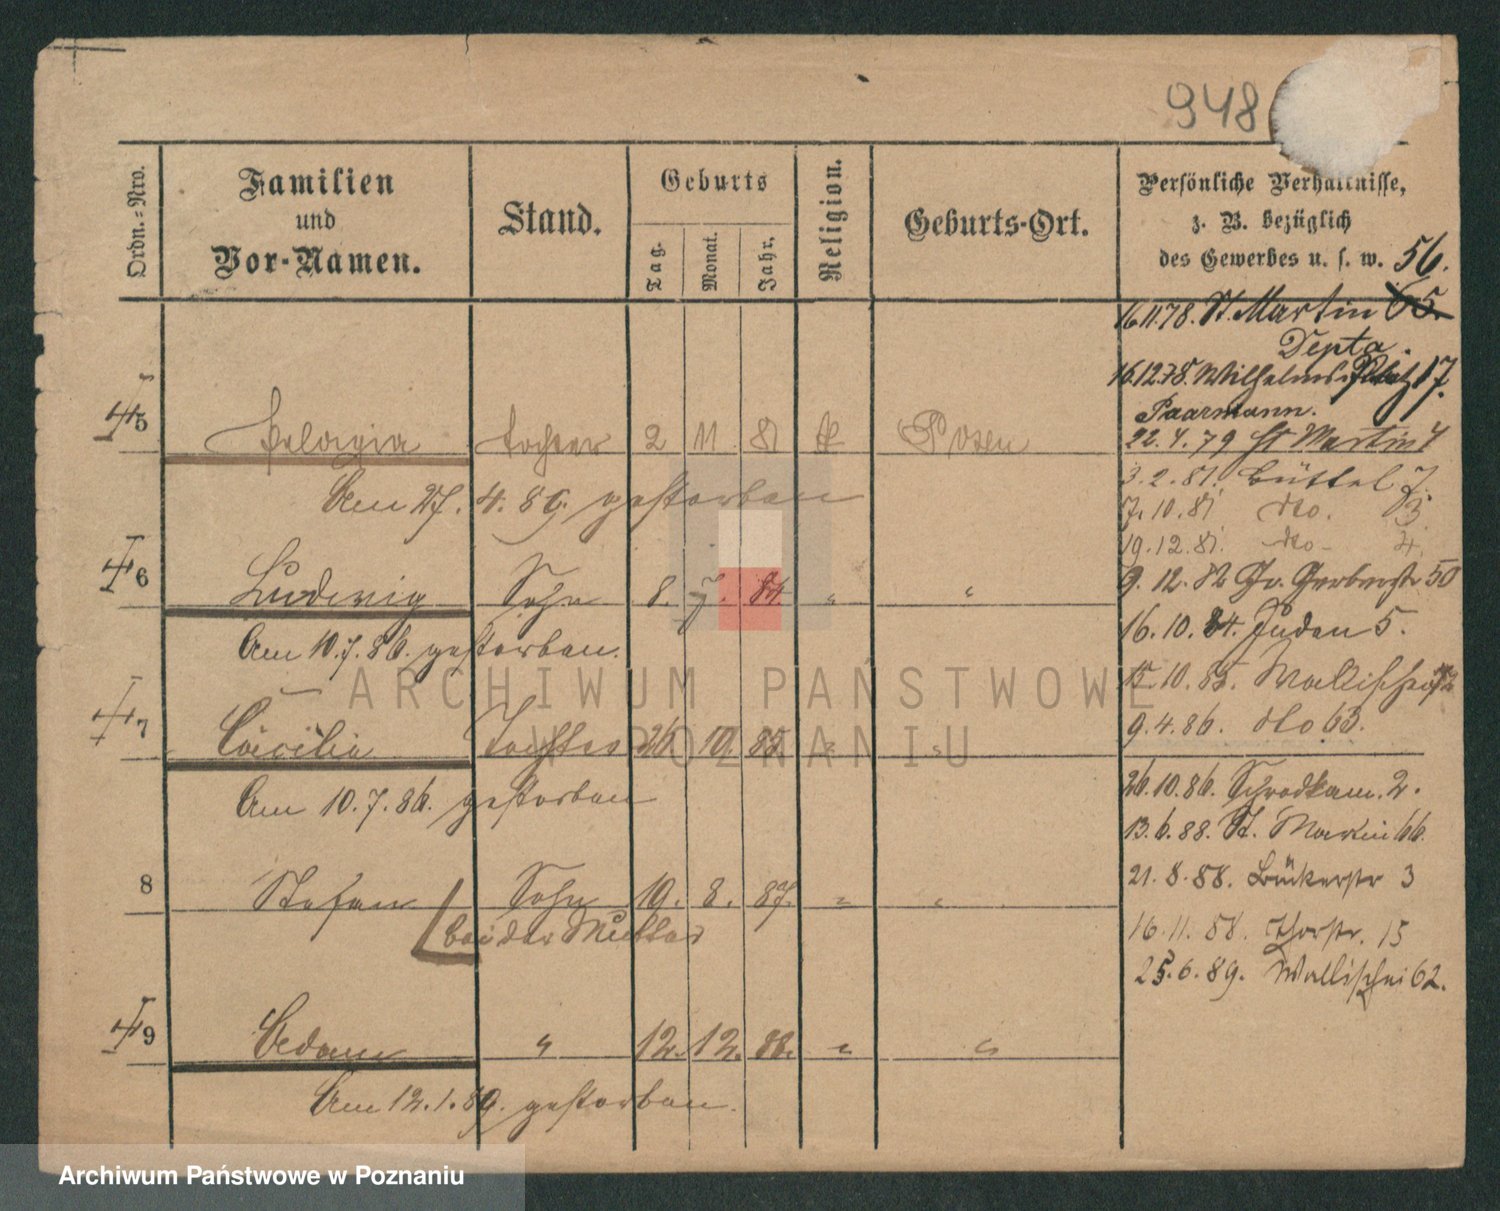 948
Ordn.=Nro.
Familien
und
Vor-Namen.
Stand.
Geburts
Tag.
Monat.
Jahr.
Religion.
Geburts-Ort.
Persönliche Verhältnisse,
z. B. bezüglich
des Gewerbes u. s. w. 56.
16.11.78. St. Martin 65.
Depta.
16.12.78. Wilhelms Platz 17.
Paarmann.
5 Pelagia Tochter 2 11. 81 Posen
22.4.79 St Martin 4
Am 27. 4. 89. gestorben
3.2.81. Büttel 7.
7.10.81 dto. 3.
19.12.81. dto - 4.
6 Ludwig Sohn 8. 7. 84. " "
9.12.82 Gr. Gerberstr 50
Am 10.7.86. gestorben.
16.10.84. Juden 5.
15.10.85. Wallischei
7 Cäcilia Tochter 26. 10. 85. " "
9.4.86. dto 63.
Am 10.7.86. gestorben
26.10.86. Schrodkam. 2.
13.6.88. St. Martin 66.
8 Stefan Sohn 19. 8. 87. " "
21.8.88. Bückerstr 3
bei der Mutter
16.11.88. Thorstr. 15
25.6.89. Wallischei 62.
9 Adam " 12. 12. 88. " "
Am 12.1.89. gestorben.
ARCHIWUM PAŃSTWOWE
W POZNANIU
Archiwum Państwowe w Poznaniu